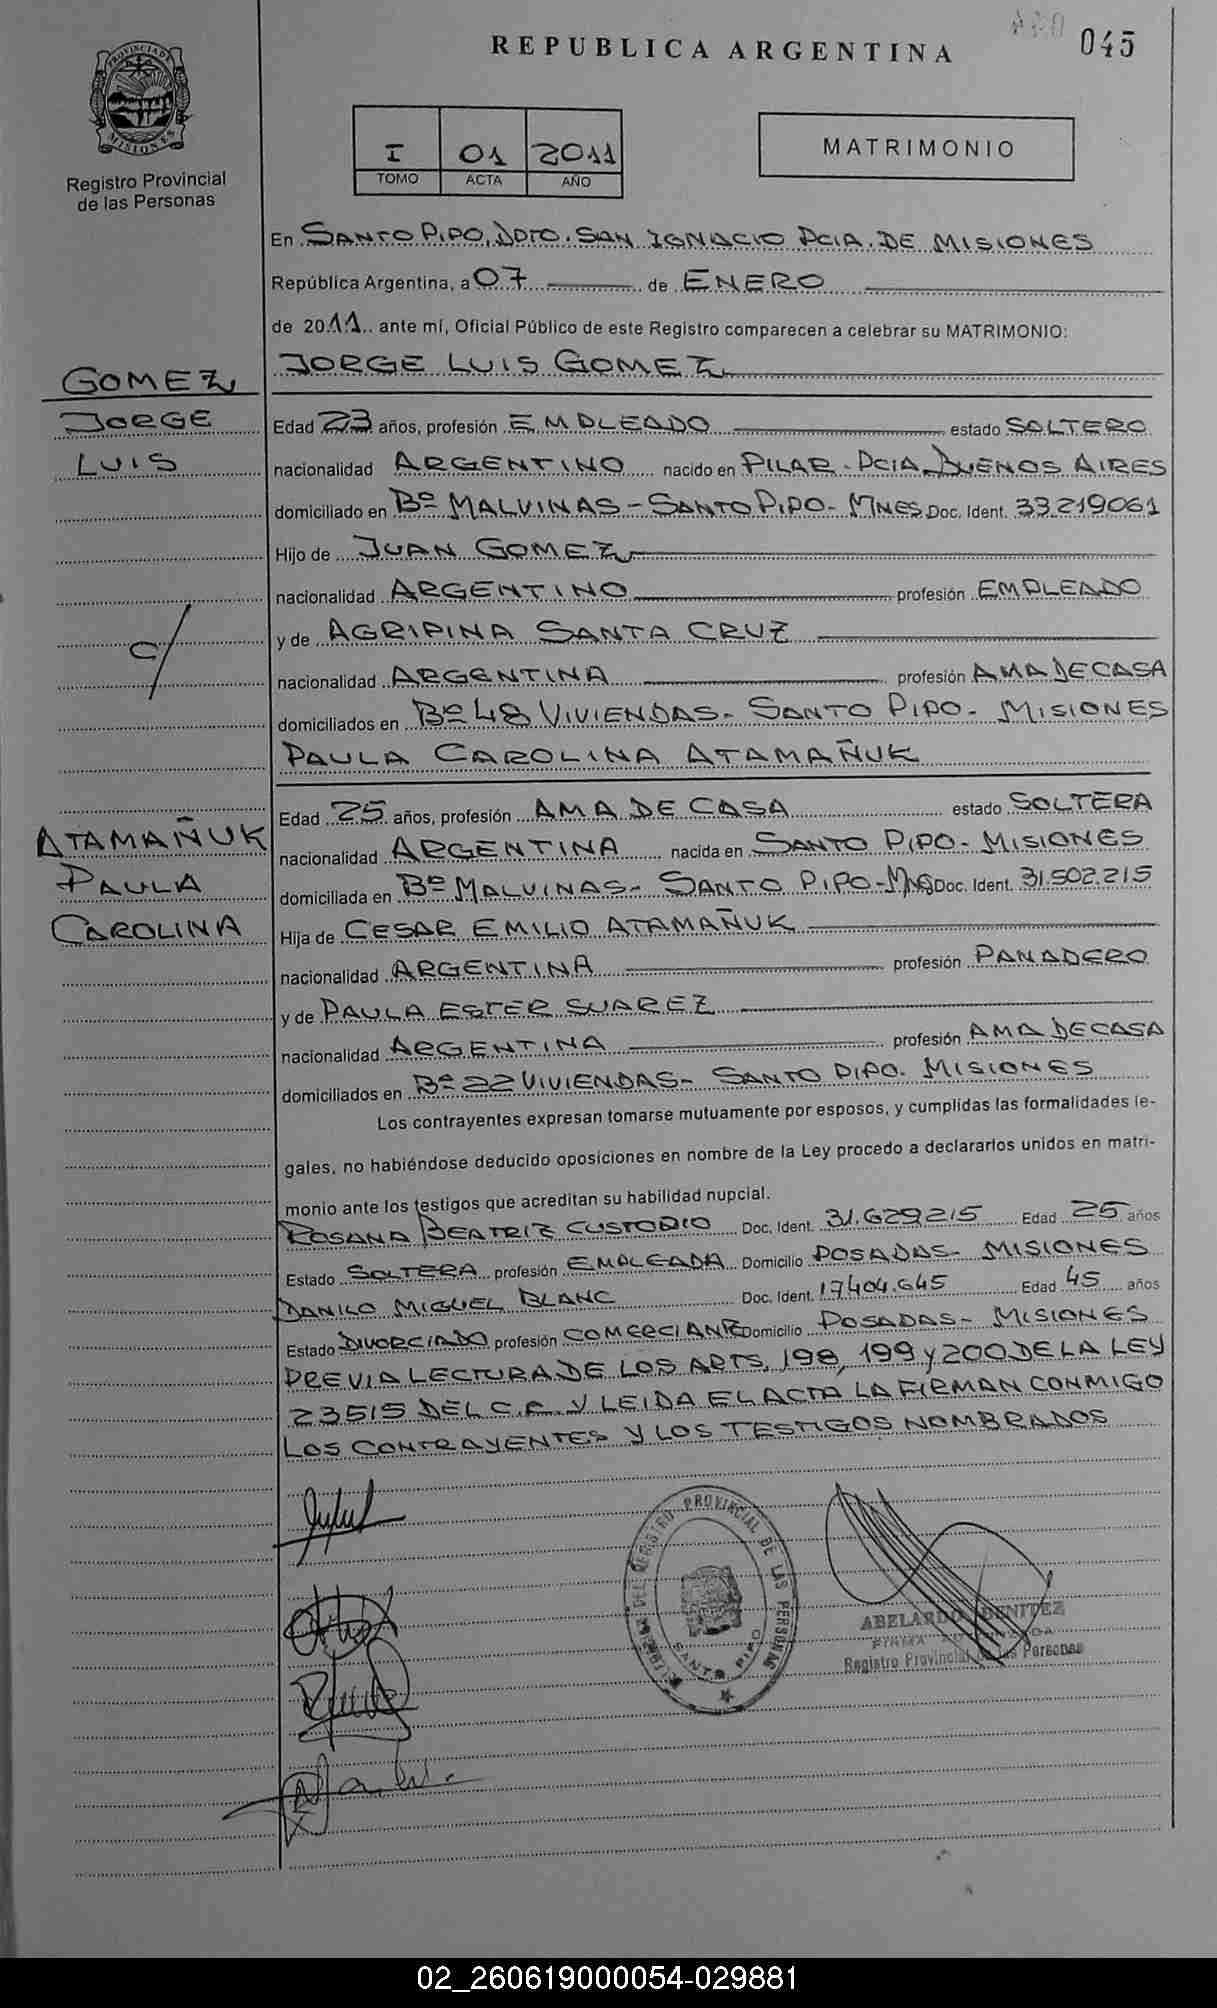 REPUBLICA ARGENTINA
045
PROVINCIA DE MISIONES
Registro Provincial
de las Personas
I 01 2011
TOMO ACTA AÑO
MATRIMONIO
En SANTO PIPO, DPTO. SAN IGNACIO PCIA. DE MISIONES
República Argentina, a 07 de ENERO
de 2011 ante mí, Oficial Público de este Registro comparecen a celebrar su MATRIMONIO:
JORGE LUIS GOMEZ
GOMEZ
JORGE
LUIS
Edad 23 años, profesión EMPLEADO estado SOLTERO
nacionalidad ARGENTINO nacido en PILAR - PCIA. BUENOS AIRES
domiciliado en Bº MALVINAS - SANTO PIPO - MNES Doc. Ident. 33.219061
Hijo de JUAN GOMEZ
nacionalidad ARGENTINO profesión EMPLEADO
c/
y de AGRIPINA SANTA CRUZ
nacionalidad ARGENTINA profesión AMA DE CASA
domiciliados en Bº 48 VIVIENDAS - SANTO PIPO - MISIONES
PAULA CAROLINA ATAMAÑUK
ATAMAÑUK
PAULA
CAROLINA
Edad 25 años, profesión AMA DE CASA estado SOLTERA
nacionalidad ARGENTINA nacida en SANTO PIPO - MISIONES
domiciliada en Bº MALVINAS - SANTO PIPO - MNS Doc. Ident. 31.502.215
Hija de CESAR EMILIO ATAMAÑUK
nacionalidad ARGENTINA profesión PANADERO
y de PAULA ESTER SUAREZ
nacionalidad ARGENTINA profesión AMA DE CASA
domiciliados en Bº 22 VIVIENDAS - SANTO PIPO. MISIONES
Los contrayentes expresan tomarse mutuamente por esposos, y cumplidas las formalidades le-
gales, no habiéndose deducido oposiciones en nombre de la Ley procedo a declararlos unidos en matri-
monio ante los testigos que acreditan su habilidad nupcial.
ROSANA BEATRIZ CUSTODIO Doc. Ident. 31.629215 Edad 25 años
Estado SOLTERA profesión EMPLEADA Domicilio POSADAS - MISIONES
DANILO MIGUEL BLANC Doc. Ident. 17404.645 Edad 45 años
Estado DIVORCIADO profesión COMERCIANTE Domicilio POSADAS - MISIONES
PREVIA LECTURA DE LOS ARTS, 198, 199 y 200 DE LA LEY
23515 DEL C.C. Y LEIDA EL ACTA LA FIRMAN CONMIGO
LOS CONTRAYENTES Y LOS TESTIGOS NOMBRADOS
DEL REGISTRO PROVINCIAL DE LAS PERSONAS
SANTO PIPO
ABELARDO BENITEZ
FIRMA AUTORIZADA
Registro Provincial de las Personas
02_260619000054-029881